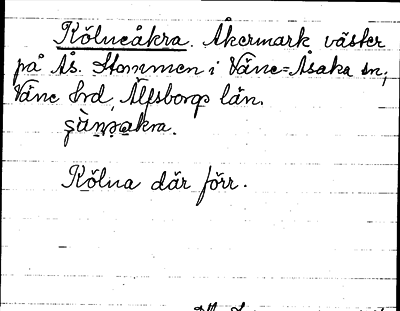 Kölneåkra. Åkermark väster
på Ås. Stommen i Väne-Åsaka sn,
Väne hd, Älfsborgs län.
Kölna där förr.